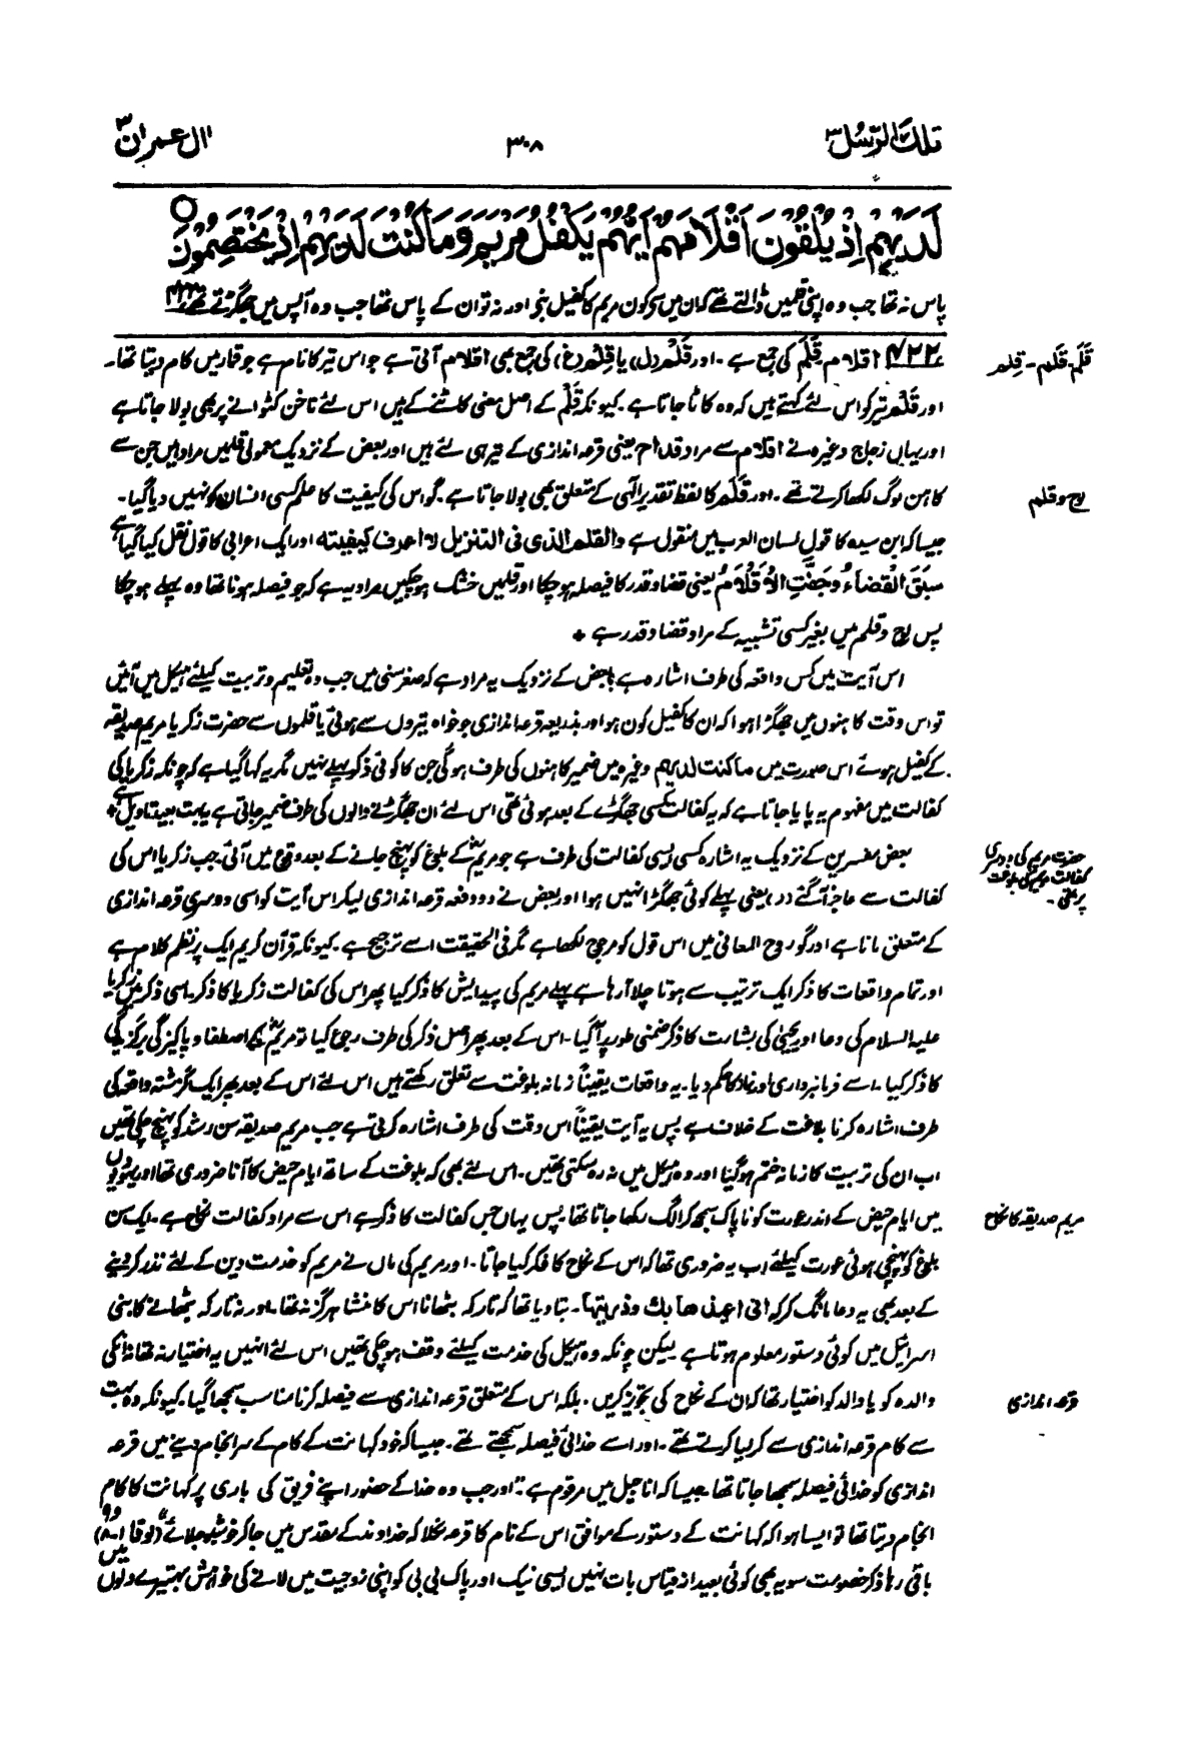 تلك الرسل ۳
۳۰۸
اٰل عمران ۳
لَدَيْهِمْ اِذْ يُلْقُوْنَ اَقْلَامَهُمْ اَيُّهُمْ يَكْفُلُ مَرْيَمَ وَمَا كُنْتَ لَدَيْهِمْ اِذْ يَخْتَصِمُوْنَ ○
پاس نہ تھا جب وہ اپنی قلمیں ڈالتے تھے کہ ان میں سے کون مریم کا کفیل بنے اور نہ تو ان کے پاس تھا جب وہ آپس میں جھگڑتے تھے ۴۲۲
۴۲۲ اقلام۔ قَلَم کی جمع ہے۔ اور قَلْم (ل) یا قِلْم (غ) کی جمع بھی اقلام آتی ہے جو اس تیر کا نام ہے جو قمار میں کام دیتا تھا۔
قَلَم۔ قَلْم۔ قِلم
اور قَلْم تیر کو اس لئے کہتے ہیں کہ وہ کاٹا جاتا ہے۔ کیونکہ قَلْم کے اصل معنی کاٹنے کے ہیں اس لئے ناخن کٹوانے پر بھی بولا جاتا ہے
اور یہاں زجاج وغیرہ نے اقلام سے مراد قداح یعنی قرعہ اندازی کے تیر ہی لئے ہیں اور بعض کے نزدیک معمولی قلمیں مراد ہیں جن سے
کاہن لوگ لکھا کرتے تھے۔ اور قَلَم کا لفظ تقدیر الٰہی کے متعلق بھی بولا جاتا ہے۔ گو اس کی کیفیت کا علم کسی انسان کو نہیں دیا گیا۔
لوح و قلم
جیسا کہ ابن سیدہ کا قول لسان العرب میں منقول ہے والقلم الذی فی التنزیل لا اعرف کیفیتہ اور ایک اعرابی کا قول نقل کیا گیا ہے
سَبَقَ الْقَضَاءُ وَجَفَّتِ الْاَقْلَامُ یعنی قضا و قدر کا فیصلہ ہو چکا اور قلمیں خشک ہو چکیں مراد یہ ہے کہ جو فیصلہ ہونا تھا وہ پہلے ہو چکا
پس لوح و قلم میں بغیر کسی تشبیہ کے مراد قضا و قدر ہے +
اس آیت میں کس واقعہ کی طرف اشارہ ہے بعض کے نزدیک یہ مراد ہے کہ صغر سنی میں جب وہ تعلیم و تربیت کیلئے ہیکل میں آئیں
تو اس وقت کاہنوں میں جھگڑا ہوا کہ ان کا کفیل کون ہو اور بذریعہ قرعہ اندازی جو خواہ تیروں سے ہوئی یا قلموں سے حضرت زکریا مریم صدیقہ
کے کفیل ہوئے اس صورت میں ما کنت لدیھم وغیرہ میں ضمیر کاہنوں کی طرف ہوگی جن کا کوئی ذکر پہلے نہیں مگر یہ کہا گیا ہے کہ چونکہ زکریا کی
کفالت میں مفہوم یہ پایا جاتا ہے کہ یہ کفالت کسی جھگڑے کے بعد ہوئی تھی اس لئے ان جھگڑنے والوں کی طرف ضمیر جاتی ہے یہ بہت بعید تاویل ہے +
بعض مفسرین کے نزدیک یہ اشارہ کسی ایسی کفالت کی طرف ہے جو مریم کے بلوغ کو پہنچ جانے کے بعد وقوع میں آئی۔ جب زکریا اس کی
حضرت مریم کی دوسری کفالت مریم کی بلوغت پر تھی۔
کفالت سے عاجز آگئے (ر) یعنی پہلے کوئی جھگڑا نہیں ہوا اور بعض نے دو دفعہ قرعہ اندازی لیکر اس آیت کو اسی دوسری قرعہ اندازی
کے متعلق مانا ہے اور گو روح المعانی میں اس قول کو مرجوح لکھا ہے مگر فی الحقیقت اسے ترجیح ہے۔ کیونکہ قرآن کریم ایک پر نظم کلام ہے
اور تمام واقعات کا ذکر ایک ترتیب سے ہوتا چلا آرہا ہے پہلے مریم کی پیدائش کا ذکر کیا پھر اس کی کفالت زکریا کا ذکر۔ اسی ذکر میں زکریا
علیہ السلام کی دعا اور یحییٰ کی بشارت کا ذکر ضمنی طور پر آگیا۔ اس کے بعد پھر اصل ذکر کی طرف رجوع کیا تو مریم کے اصطفا و پاکیزگی برگزیدگی
کا ذکر کیا۔ اسے فرمانبرداری اور نماز کا حکم دیا۔ یہ واقعات یقیناً زمانہ بلوغت سے تعلق رکھتے ہیں اس لئے اس کے بعد پھر ایک گزشتہ واقعہ کی
طرف اشارہ کرنا بلاغت کے خلاف ہے پس یہ آیت یقیناً اس وقت کی طرف اشارہ کرتی ہے جب مریم صدیقہ سن رشد کو پہنچ چکی تھیں
اب ان کی تربیت کا زمانہ ختم ہوگیا اور وہ ہیکل میں نہ رہ سکتی تھیں۔ اس لئے بھی کہ بلوغت کے ساتھ ایام حیض کا آنا ضروری تھا اور یہودیوں
میں ایام حیض کے اندر عورت کو ناپاک سمجھ کر الگ رکھا جاتا تھا پس یہاں جس کفالت کا ذکر ہے اس سے مراد کفالت نکاح ہے۔ ایک سن
مریم صدیقہ کا نکاح
بلوغ کو پہنچی ہوئی عورت کیلئے اب یہ ضروری تھا کہ اس کے نکاح کا فکر کیا جاتا۔ اور مریم کی ماں نے مریم کو خدمت دین کے لئے نذر کر دینے
کے بعد بھی یہ دعا مانگ کر کہ انی اعیذھا بك وذریتھا۔ بتا دیا تھا کہ تارکہ بٹھانا اس کا منشا ہرگز نہ تھا۔ اور نہ تارکہ بٹھانے کا بنی
اسرائیل میں کوئی دستور معلوم ہوتا ہے لیکن چونکہ وہ ہیکل کی خدمت کیلئے وقف ہو چکی تھیں اس لئے انہیں یہ اختیار نہ تھا نہ انکی
والدہ کو یا والد کو اختیار تھا کہ ان کے نکاح کی تجویز کریں۔ بلکہ اس کے متعلق قرعہ اندازی سے فیصلہ کرنا مناسب سمجھا گیا۔ کیونکہ وہ بہت
قرعہ اندازی
سے کام قرعہ اندازی سے کر لیا کرتے تھے۔ اور اسے خدائی فیصلہ سمجھتے تھے۔ جیسا کہ خود کہانت کے کام کے سرانجام دینے میں قرعہ
اندازی کو خدائی فیصلہ سمجھا جاتا تھا۔ جیسا کہ اناجیل میں مرقوم ہے: "اور جب وہ خدا کے حضور اپنے فریق کی باری پر کہانت کا کام
انجام دیتا تھا تو ایسا ہوا کہ کہانت کے دستور کے موافق اس کے نام کا قرعہ نکلا کہ خداوند کے مقدس میں جا کر خوشبو جلائے" (لوقا ۱: ۸ و ۹)
باقی رہا ذکر خصومت سو یہ بھی کوئی بعید از قیاس بات نہیں ایسی نیک اور پاک بی بی کو اپنی زوجیت میں لانے کی خواہش بہتیرے دلوں میں